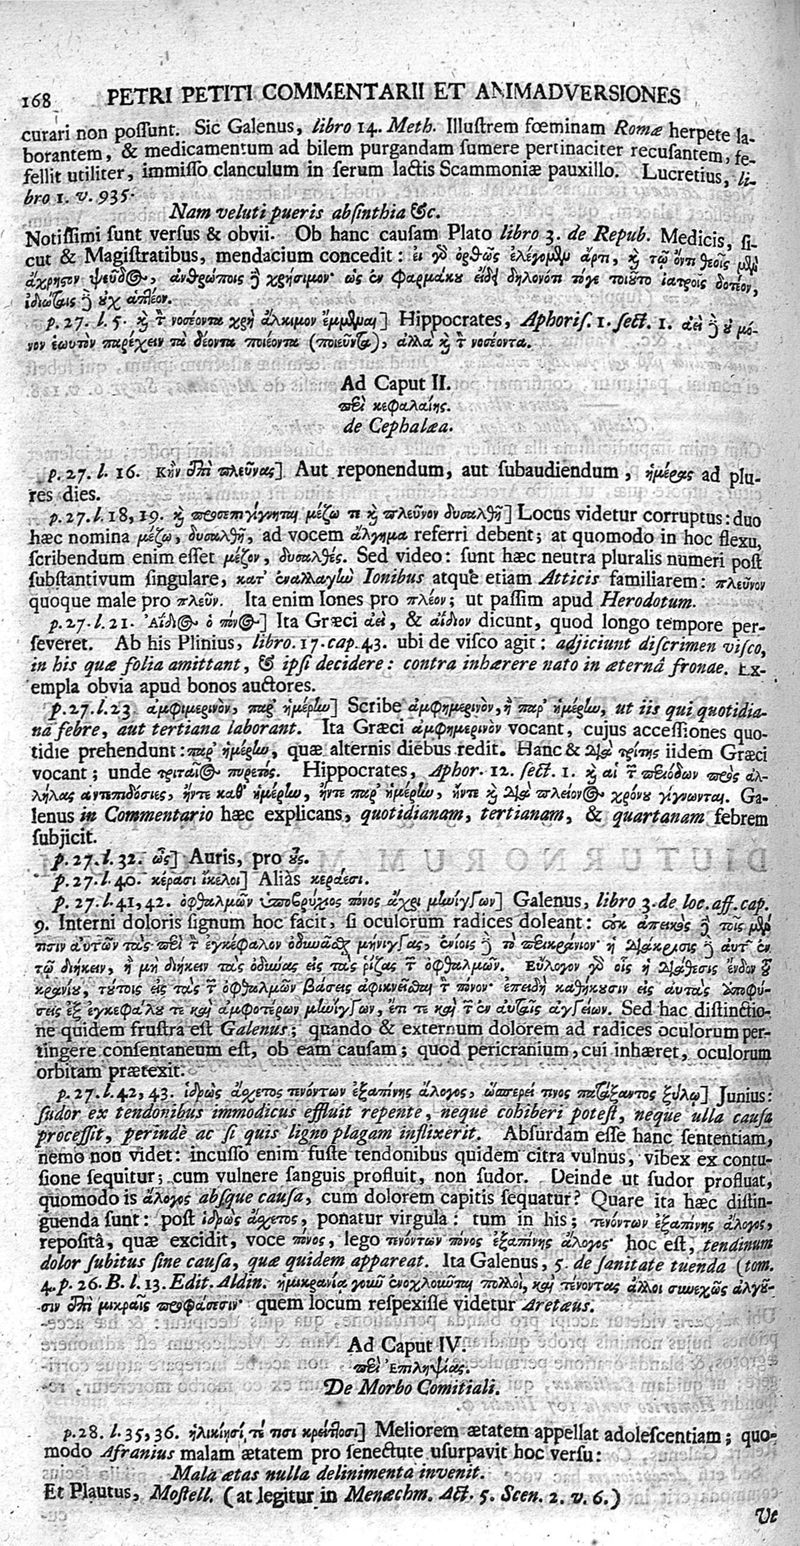 168 PETRI PETITI COMMENTARII ET ANIMADVERSIONES
curari non possunt. Sic Galenus, libro 14. Meth. Illustrem fœminam Romæ herpete la-
borantem, & medicamentum ad bilem purgandam sumere pertinaciter recusantem, fe-
fellit utiliter, immisso clanculum in serum lactis Scammoniæ pauxillo. Lucretius, li-
bro 1. v. 935.
Nam veluti pueris absinthia &c.
Notissimi sunt versus & obvii. Ob hanc causam Plato libro 3. de Repub. Medicis, si-
cut & Magistratibus, mendacium concedit: εἰ γὸ ὀρθῶς ἐλέγομεν ἄρτι, καὶ τῷ ὄντι θεοῖς μὲν
ἄχρηστον ψεῦδος, ἀνθρώποις ἢ χρήσιμον· ὡς ἐν φαρμάκου εἴδει δηλονότι τόγε τοιοῦτο ἰατροῖς δοτέον,
ἰδιώταις ἢ οὐχ ἁπτέον.
p. 27. l. 5. καὶ τ νοσέοντα χρὴ ἄλκιμον ἔμμεναι] Hippocrates, Aphoris. 1. sect. 1. ἀεὶ ἢ οὐ μό-
νον ἑωυτὸν παρέχειν τὰ δέοντα ποιέοντα (ποιεῦντα), ἀλλὰ καὶ τ νοσέοντα.
Ad Caput II.
περὶ κεφαλαίης.
de Cephalæa.
p. 27. l. 16. Κἢν ἐπὶ πλεῦνας] Aut reponendum, aut subaudiendum, ἡμέρας ad plu-
res dies.
p. 27. l. 18, 19. καὶ προσεπιγίγνηται μέζω τι καὶ πλεῦνον δυσαλθῆ] Locus videtur corruptus: duo
hæc nomina μέζω, δυσαλθῆ, ad vocem ἄλγημα referri debent; at quomodo in hoc flexu,
scribendum enim esset μέζον, δυσαλθές. Sed video: sunt hæc neutra pluralis numeri post
substantivum singulare, κατ' ἐναλλαγὼ Ionibus atque etiam Atticis familiarem: πλεῦνον
quoque male pro πλεῦν. Ita enim Iones pro πλέον; ut passim apud Herodotum.
p. 27. l. 21. Ἀΐδιος ὁ πόνος] Ita Græci ἀεὶ, & ἀΐδιον dicunt, quod longo tempore per-
severet. Ab his Plinius, libro. 17. cap. 43. ubi de visco agit: adjiciunt discrimen visco,
in his quæ folia amittant, & ipsi decidere: contra inhærere nato in æternâ fronde. Ex-
empla obvia apud bonos auctores.
p. 27. l. 23 ἀμφιμερινὸν, παρ' ἡμέρην] Scribe ἀμφημερινὸν, ἢ παρ' ἡμέρην, ut iis qui quotidia-
nâ febre, aut tertiana laborant. Ita Græci ἀμφημερινὸν vocant, cujus accessiones quo-
tidie prehendunt: παρ' ἡμέρην, quæ alternis diebus redit. Hanc & διὰ τρίτης iidem Græci
vocant; unde τριταῖος πυρετός. Hippocrates, Aphor. 12. sect. 1. καὶ αἱ τ περιόδων πρὸς ἀλ-
λήλας ἀντεπιδόσιες, ἤντε καθ' ἡμέρην, ἤντε παρ' ἡμέρην, ἤντε καὶ διὰ πλείονος χρόνου γίγνωνται. Ga-
lenus in Commentario hæc explicans, quotidianam, tertianam, & quartanam febrem
subjicit.
p. 27. l. 32. ὦς] Auris, pro οὖς.
p. 27. l. 40. κέρασι ἴκελοι] Aliàs κεράεσι.
p. 27. l. 41, 42. ὀφθαλμῶν ὑποβρύχιος πόνος ἄχρι μηνίγγων] Galenus, libro 3. de loc. aff. cap.
9. Interni doloris signum hoc facit, si oculorum radices doleant: οὐκ ἀπεικὸς ἢ τοῖς μὲν
τισιν αὐτῶν τὰς περὶ τ ἐγκέφαλον ὀδυνᾶσθαι μήνιγγας, ἐνίοις ἢ τὸ περικράνιον· ἡ διάκρισις ἢ αὐτῶν ἐν
τῷ διήκειν, ἢ μὴ διήκειν τὰς ὀδύνας εἰς τὰς ῥίζας τ ὀφθαλμῶν. Εὔλογον γὸ οἷς ἡ διάθεσις ἔνδον τοῦ
κρανίου, τούτοις εἰς τὰς τ ὀφθαλμῶν βάσεις ἀφικνεῖσθαι τ πόνον· ἐπειδὴ καθήκουσιν εἰς αὐτὰς ἀποφύ-
σεις ἐξ ἐγκεφάλου τε καὶ ἀμφοτέρων μηνίγγων, ἔτι τε καὶ τ ἐν αὐταῖς ἀγγείων. Sed hac distinctio-
ne quidem frustra est Galenus; quando & externum dolorem ad radices oculorum per-
tingere consentaneum est, ob eam causam; quod pericranium, cui inhæret, oculorum
orbitam prætexit.
p. 27. l. 42, 43. ἱδρὼς ἄσχετος τενόντων ἐξαπίνης ἄλογος, ὡσπερεί τινος πατάξαντος ξύλῳ] Junius:
sudor ex tendonibus immodicus effluit repente, neque cohiberi potest, neque ulla causa
processit, perindè ac si quis ligno plagam inflixerit. Absurdam esse hanc sententiam,
nemo non videt: incusso enim fuste tendonibus quidem citra vulnus, vibex ex contu-
sione sequitur; cum vulnere sanguis profluit, non sudor. Deinde ut sudor profluat,
quomodo is ἄλογος absque causa, cum dolorem capitis sequatur? Quare ita hæc distin-
guenda sunt: post ἱδρὼς ἄσχετος, ponatur virgula: tum in his; τενόντων ἐξαπίνης ἄλογος,
repositâ, quæ excidit, voce πόνος, lego τενόντων πόνος ἐξαπίνης ἄλογος· hoc est, tendinum
dolor subitus sine causa, quæ quidem appareat. Ita Galenus, 5. de sanitate tuenda (tom.
4. p. 26. B. l. 13. Edit. Aldin. ἡμικρανία γοῦν ἐνοχλοῦνται πολλοὶ, καὶ τένοντας ἄλλοι συνεχῶς ἀλγοῦ-
σιν ἐπὶ μικραῖς προφάσεσιν· quem locum respexisse videtur Aretæus.
Ad Caput IV.
περὶ Ἐπιληψίας.
De Morbo Comitiali.
p. 28. l. 35, 36. ἡλικίησι, τέ τισι κρείττοσι] Meliorem ætatem appellat adolescentiam; quo-
modo Afranius malam ætatem pro senectute usurpavit hoc versu:
Mala ætas nulla delinimenta invenit.
Et Plautus, Mostell. (at legitur in Menæchm. Act. 5. Scen. 2. v. 6.)
Ut